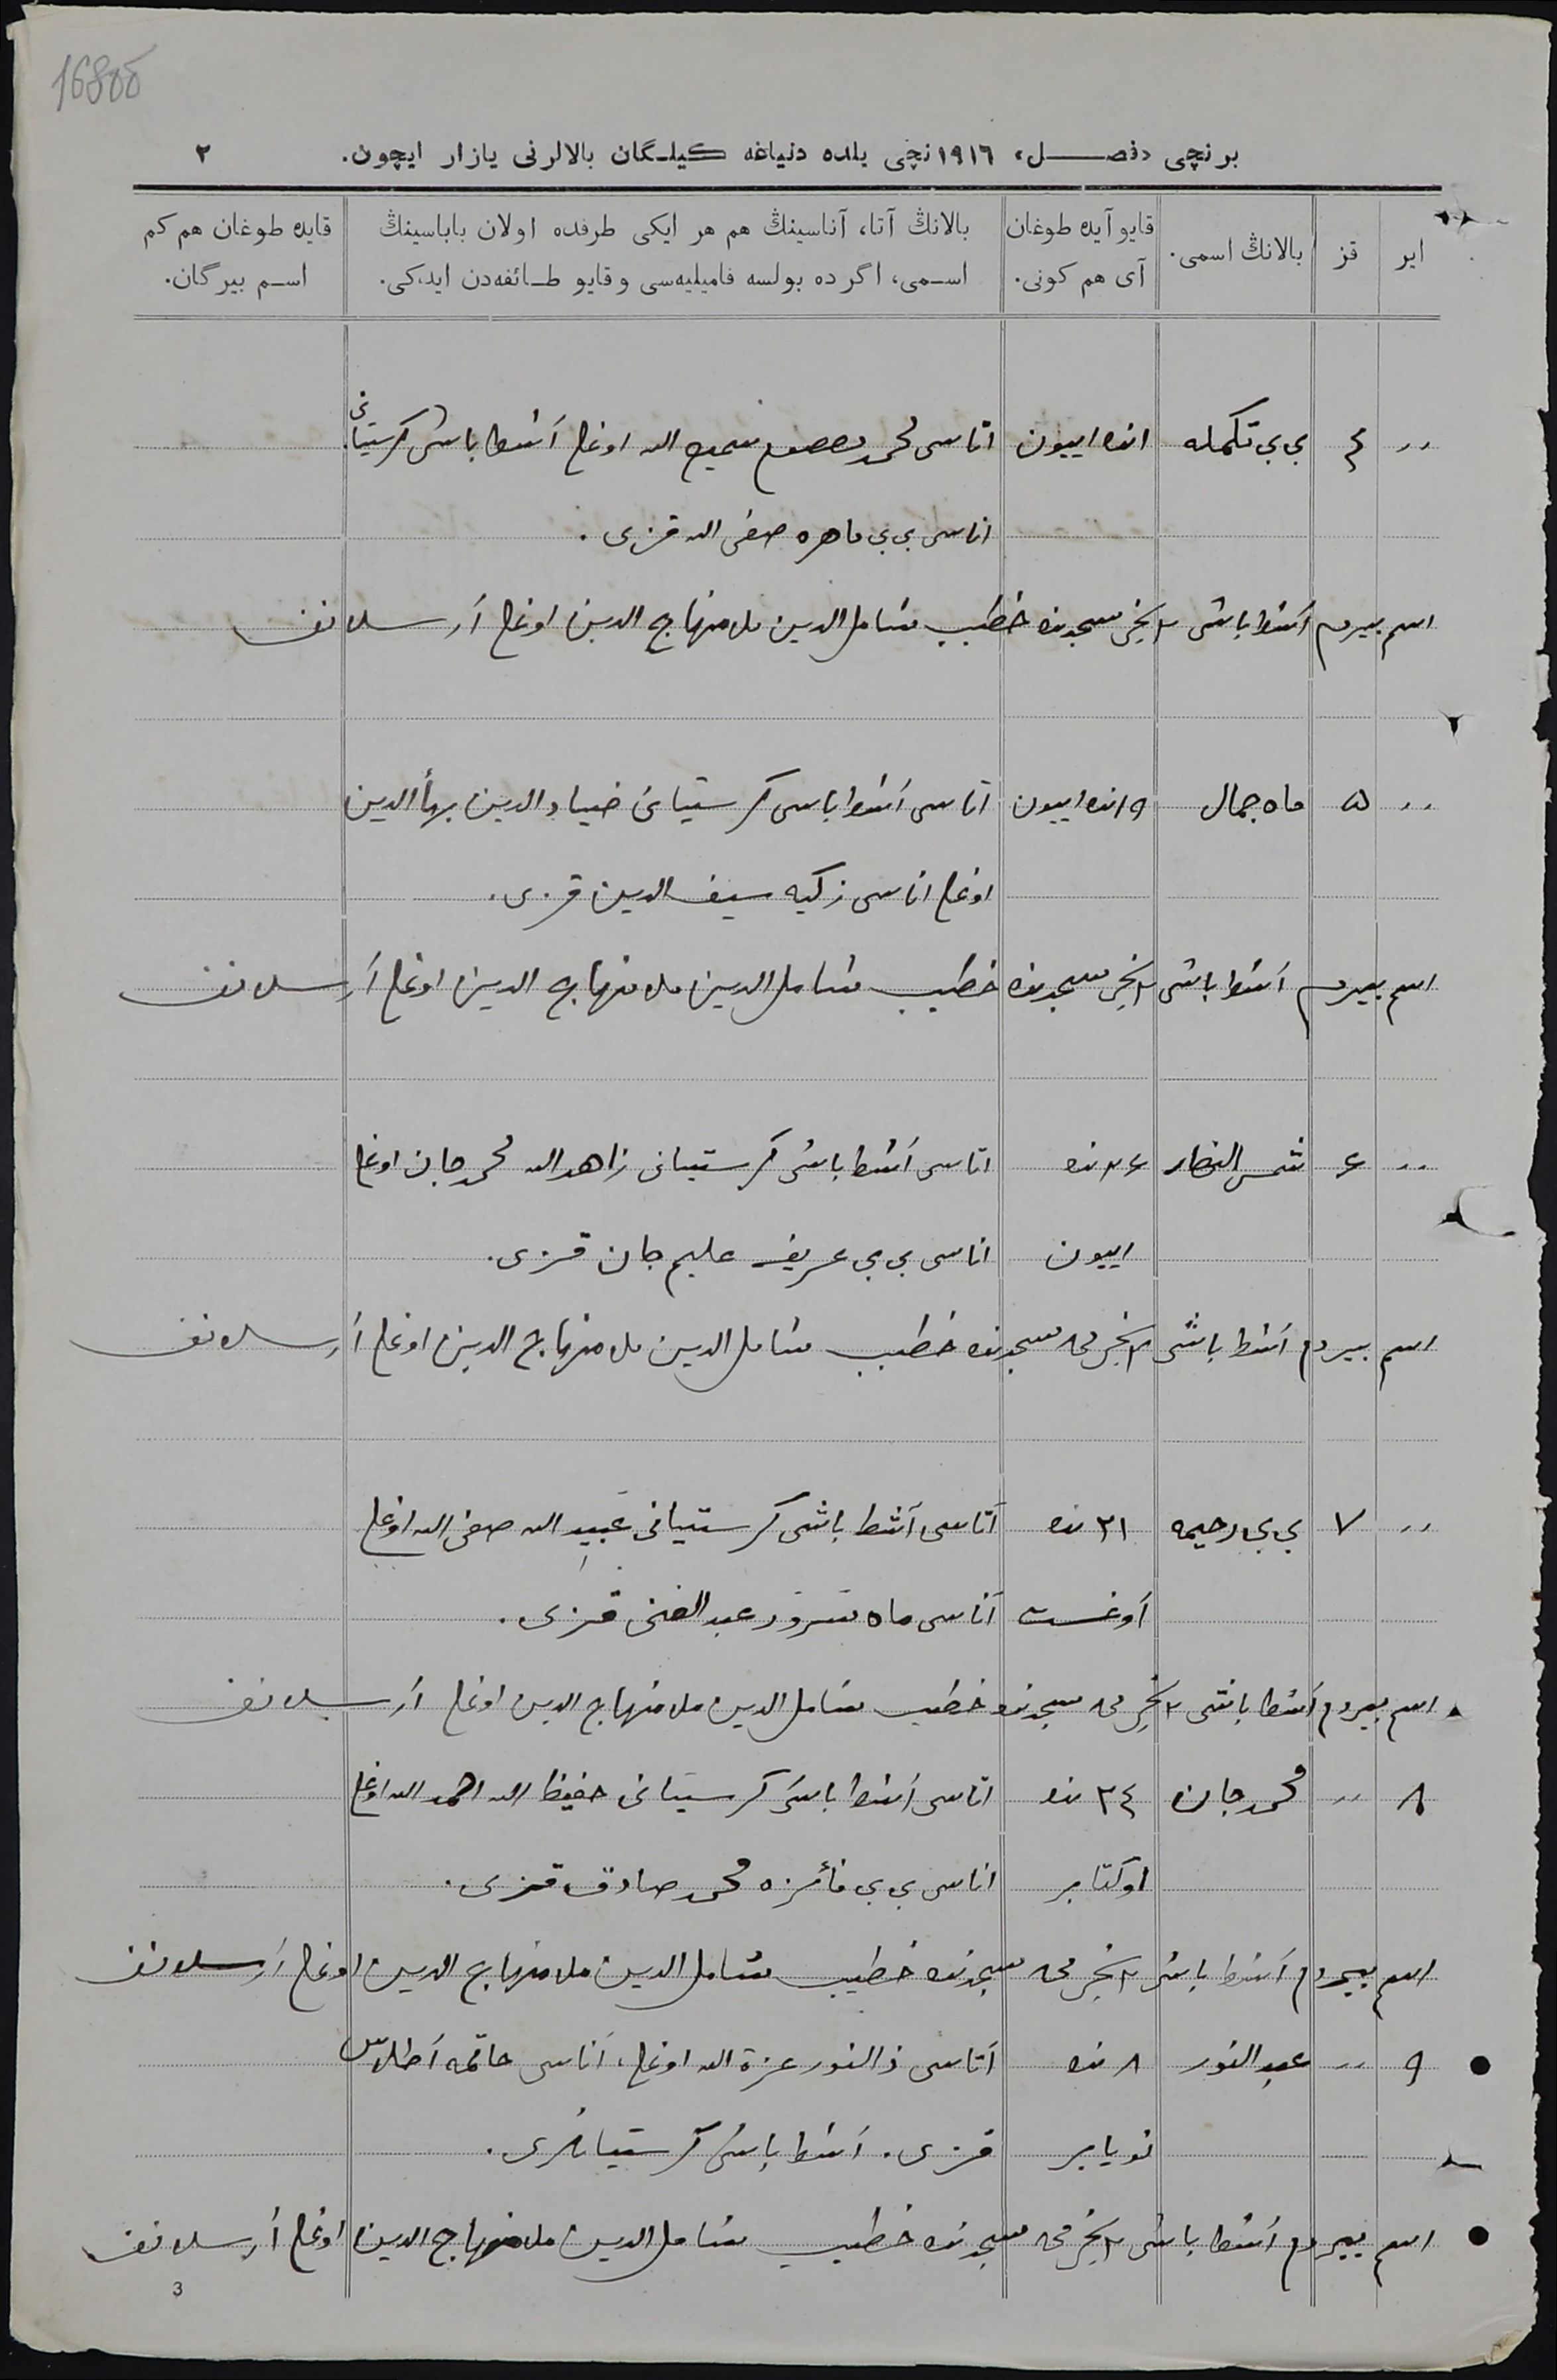 16800
برنچی «فصـــل» ١٩١٦نچی یلده دنیاغه کیلـگان بالالرنی یازار ایچون. ٢
ایر
قز
بالانڭ اسمی.
قایو آیده طوغان
آی هم کونی.
بالانڭ آتا، آناسینڭ هم هر ایکی طرفده اولان باباسینڭ
اسـمی، اگر ده بولسه فامیلیه‌سی و قایو طـائفه‌دن ایدکی.
قایده طوغان هم کم
اسـم بیرگان.
,, ٤ بی بی تکمله ایون اتاسی محمد سمیع الله اوغلی آشطا باش کرستیانی
اناسی بی بی ماهره صفی الله قزی.
اسم بیردم آشطا باش ٢ نچی مسجدنده خطیب شامل الدین ملا منهاج الدین اوغلی آرسلانف
,, ٥ ماه جمال ١٩ نده اییون اتاسی آشطا باش کرستیانی ضیاء الدین بهأ الدین
اوغلی اناسی زکیه سیف الدین قزی.
اسم بیردم آشطا باش ٢ نچی مسجدنده خطیب شامل الدین ملا منهاج الدین اوغلی آرسلانف
,, ٦ شمس النهار ٢٦ نده اتاسی آشطا باش کرستیانی زاهد الله محمد جان اوغلی
اییون اناسی بی بی عریفه علیم جان قزی.
اسم بیردم آشطا باش ٢ نچی محله مسجدنده خطیب شامل الدین ملا منهاج الدین اوغلی آرسلانف
,, ٧ بی بی رحیمه ٢١ نده آتاسی آشطا باش کرستیانی عبید الله صفی الله اوغلی
آوغست آناسی ماه سرور عبد الغنی قزی.
اسم بیردم آشطا باش ٢ نچی محله مسجدنده خطیب شامل الدین ملا منهاج الدین اوغلی آرسلانف
٨ ,, محمد جان ٢٤ نده اتاسی آشطا باش کرستیانی حفیظ الله احمد الله اوغلی
اوکتابر اناسی بی بی فائزه محمد صادق قزی.
اسم بیردم آشطا باش ٢ نچی محله مسجدنده خطیب شامل الدین ملا منهاج الدین اوغلی آرسلانف
٩ ,, عبد النور ٨ نده آتاسی ذا النور عزة الله اوغلی، آناسی حاتمه آطلاس
نویابر قزی. آشطا باش کرستیانلری.
اسم بیردم آشطا باش ٢ نچی محله مسجدنده خطیب شامل الدین ملا منهاج الدین اوغلی آرسلانف
3